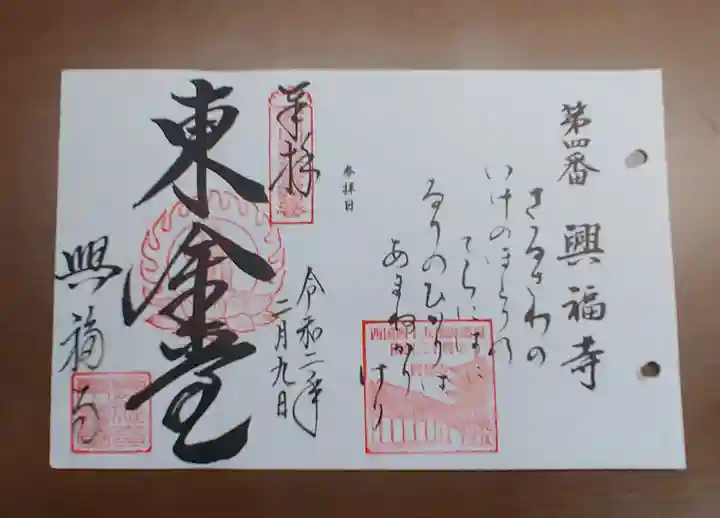 第四番 興福寺
さるさわの
いけのほとりの
てらにしも
るりのひかりは
あまねかり
けり
参拝日
奉拝
令和二年
二月九日
東金堂
興福寺